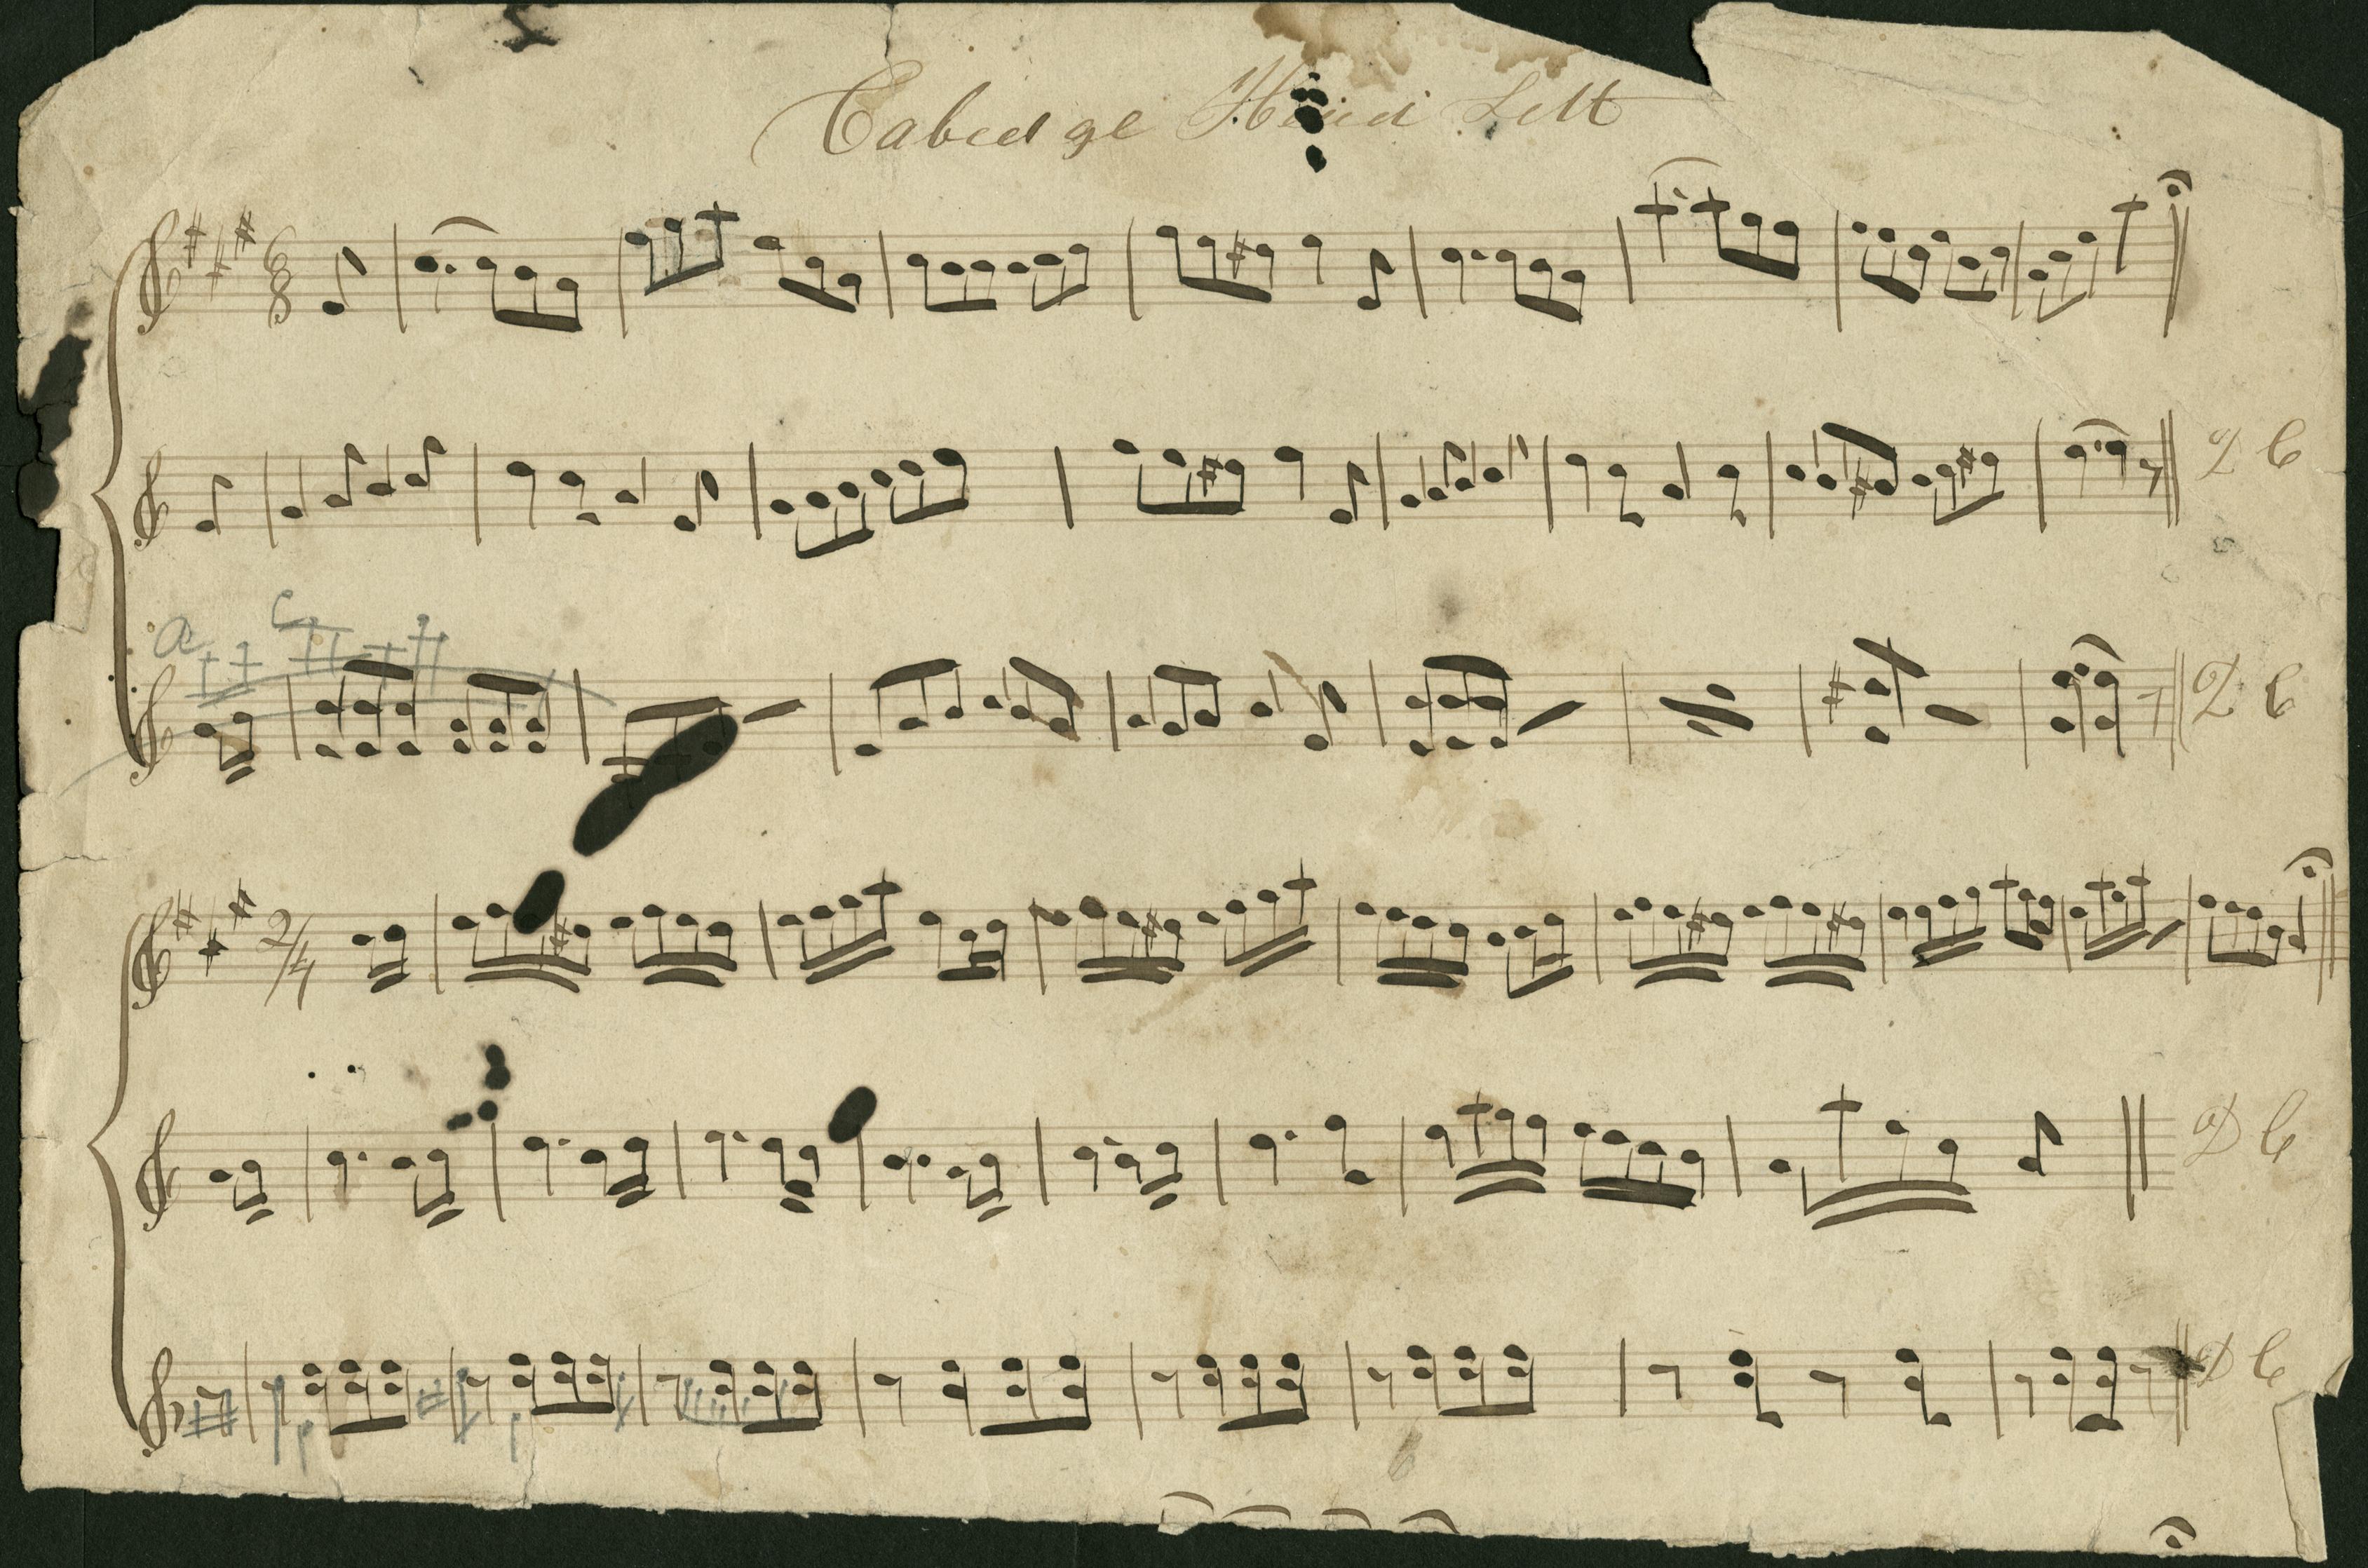 Cabedge Head Sett
6
8
D C
a c
D C
2/4
D C
D C